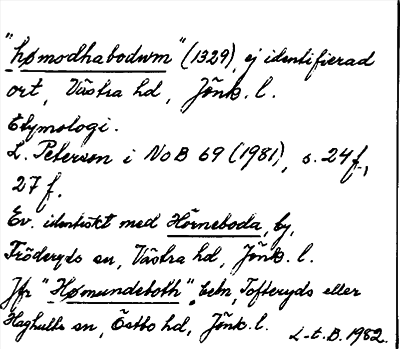 "hømodhabodum" (1329), ej identifierad
ort, Västra hd, Jönk. l.
Etymologi.
L. Peterson i NoB 69 (1981), s. 24 f.,
27 f.
Ev. identiskt med Hörneboda, by,
Fröderyds sn, Västra hd, Jönk. l.
Jfr "Hømundeboth", Tofteryds eller
Haghults sn, Östbo hd, Jönk. l.
L-t. B. 1982.